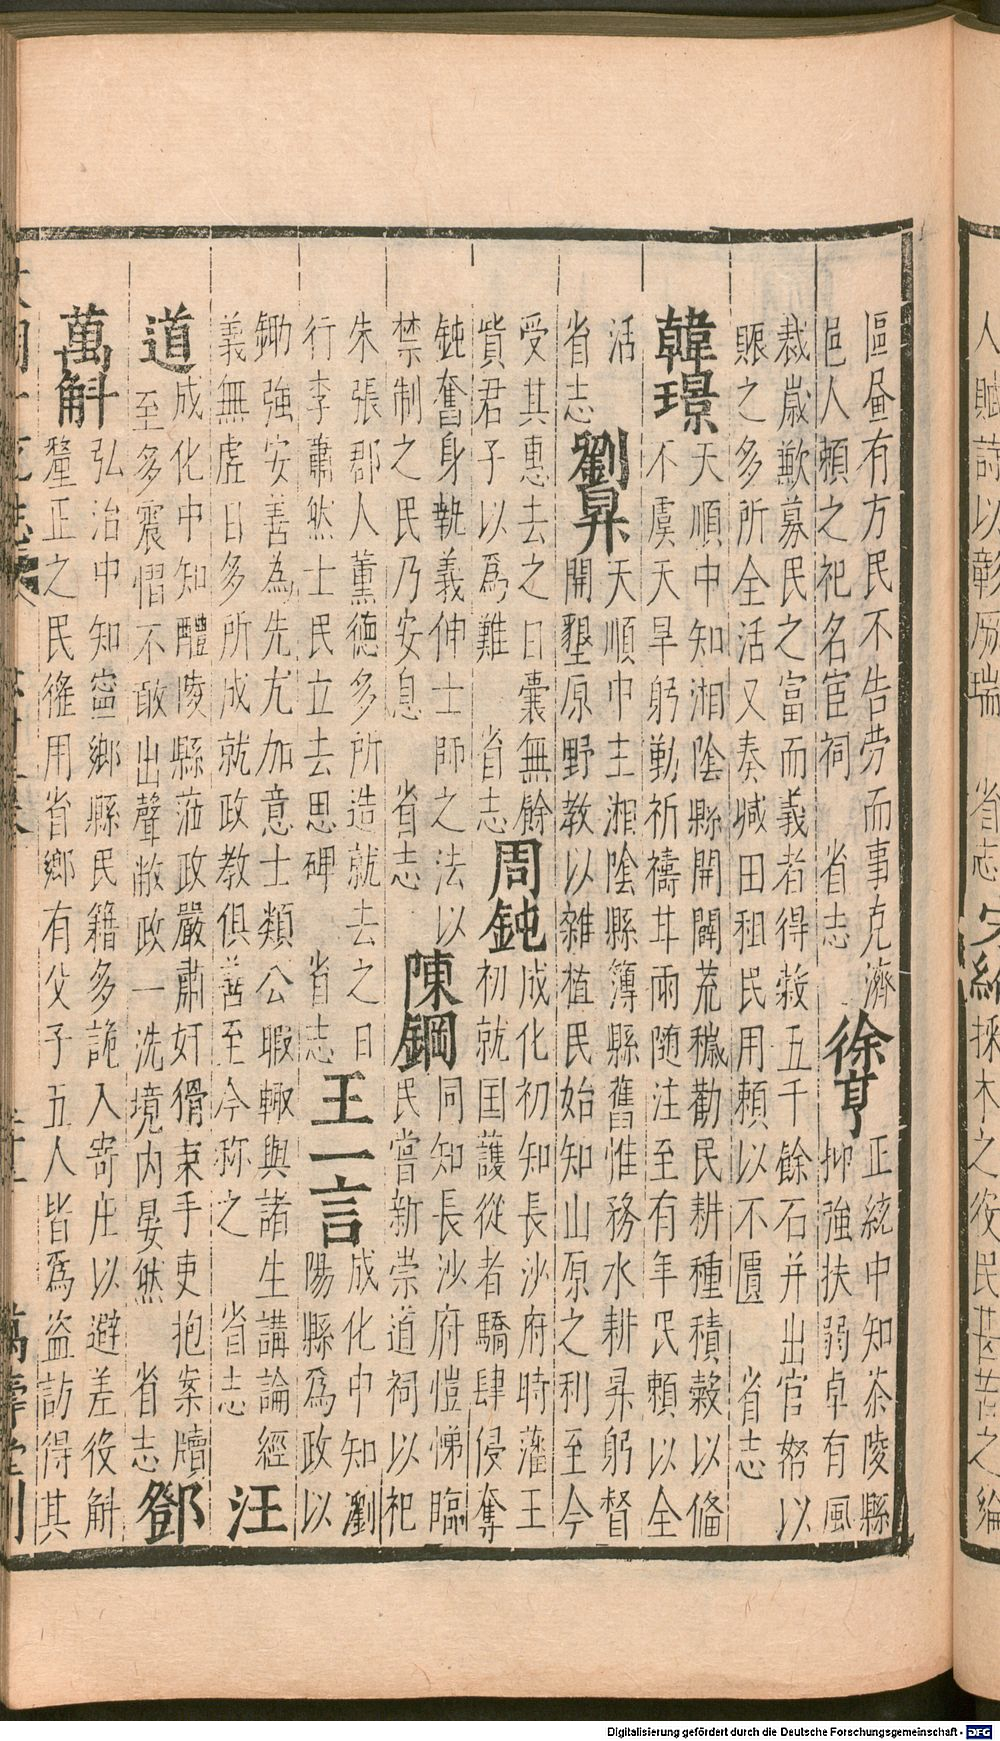 人賦詩以彰厥瑞 省志 宋綸 採木之役民甚苦之綸
區昼有方民不告劳而事克濟
邑人賴之祀名宦祠 省志
徐亨
正統中知茶陵縣
抑強扶弱卓有風
裁歲歉募民之富而義者得穀五千餘石并出官帑以
賑之多所全活又奏堿田租民用賴以不匱 省志
韓璟
天順中知湘陰縣開闢荒穢勸民耕種積穀以備
不虞天旱躬勤祈禱甘雨随注至有年民賴以全
活
省志
劉昇
天順中主湘陰縣簿縣舊惟務水耕昇躬督
開墾原野教以雜植民始知山原之利至今
受其惠去之日囊無餘
貲君子以爲難 省志
周鈍
成化初知長沙府時藩王
初就国護從者驕肆侵奪
鈍奮身執義伸士師之法以
禁制之民乃安息 省志
陳鋼
同知長沙府愷悌臨
民嘗新崇道祠以祀
朱張郡人薰德多所造就去之日
行李蕭然士民立去思碑 省志
王一言
成化中知瀏
陽縣爲政以
鋤強安善為先尤加意士類公暇輙與諸生講論經
義無虛日多所成就政教俱善至今称之 省志
汪
道
成化中知醴陵縣蒞政嚴肅奸猾束手吏抱案牘
至多震慴不敢出聲敝政一洗境内晏然 省志
鄧
萬斛
弘治中知寧鄉縣民籍多詭入寄庄以避差役斛
釐正之民徭用省鄉有父子五人皆爲盗訪得其
萬壽堂刊
Digitalisierung gefördert durch die Deutsche Forschungsgemeinschaft - DFG